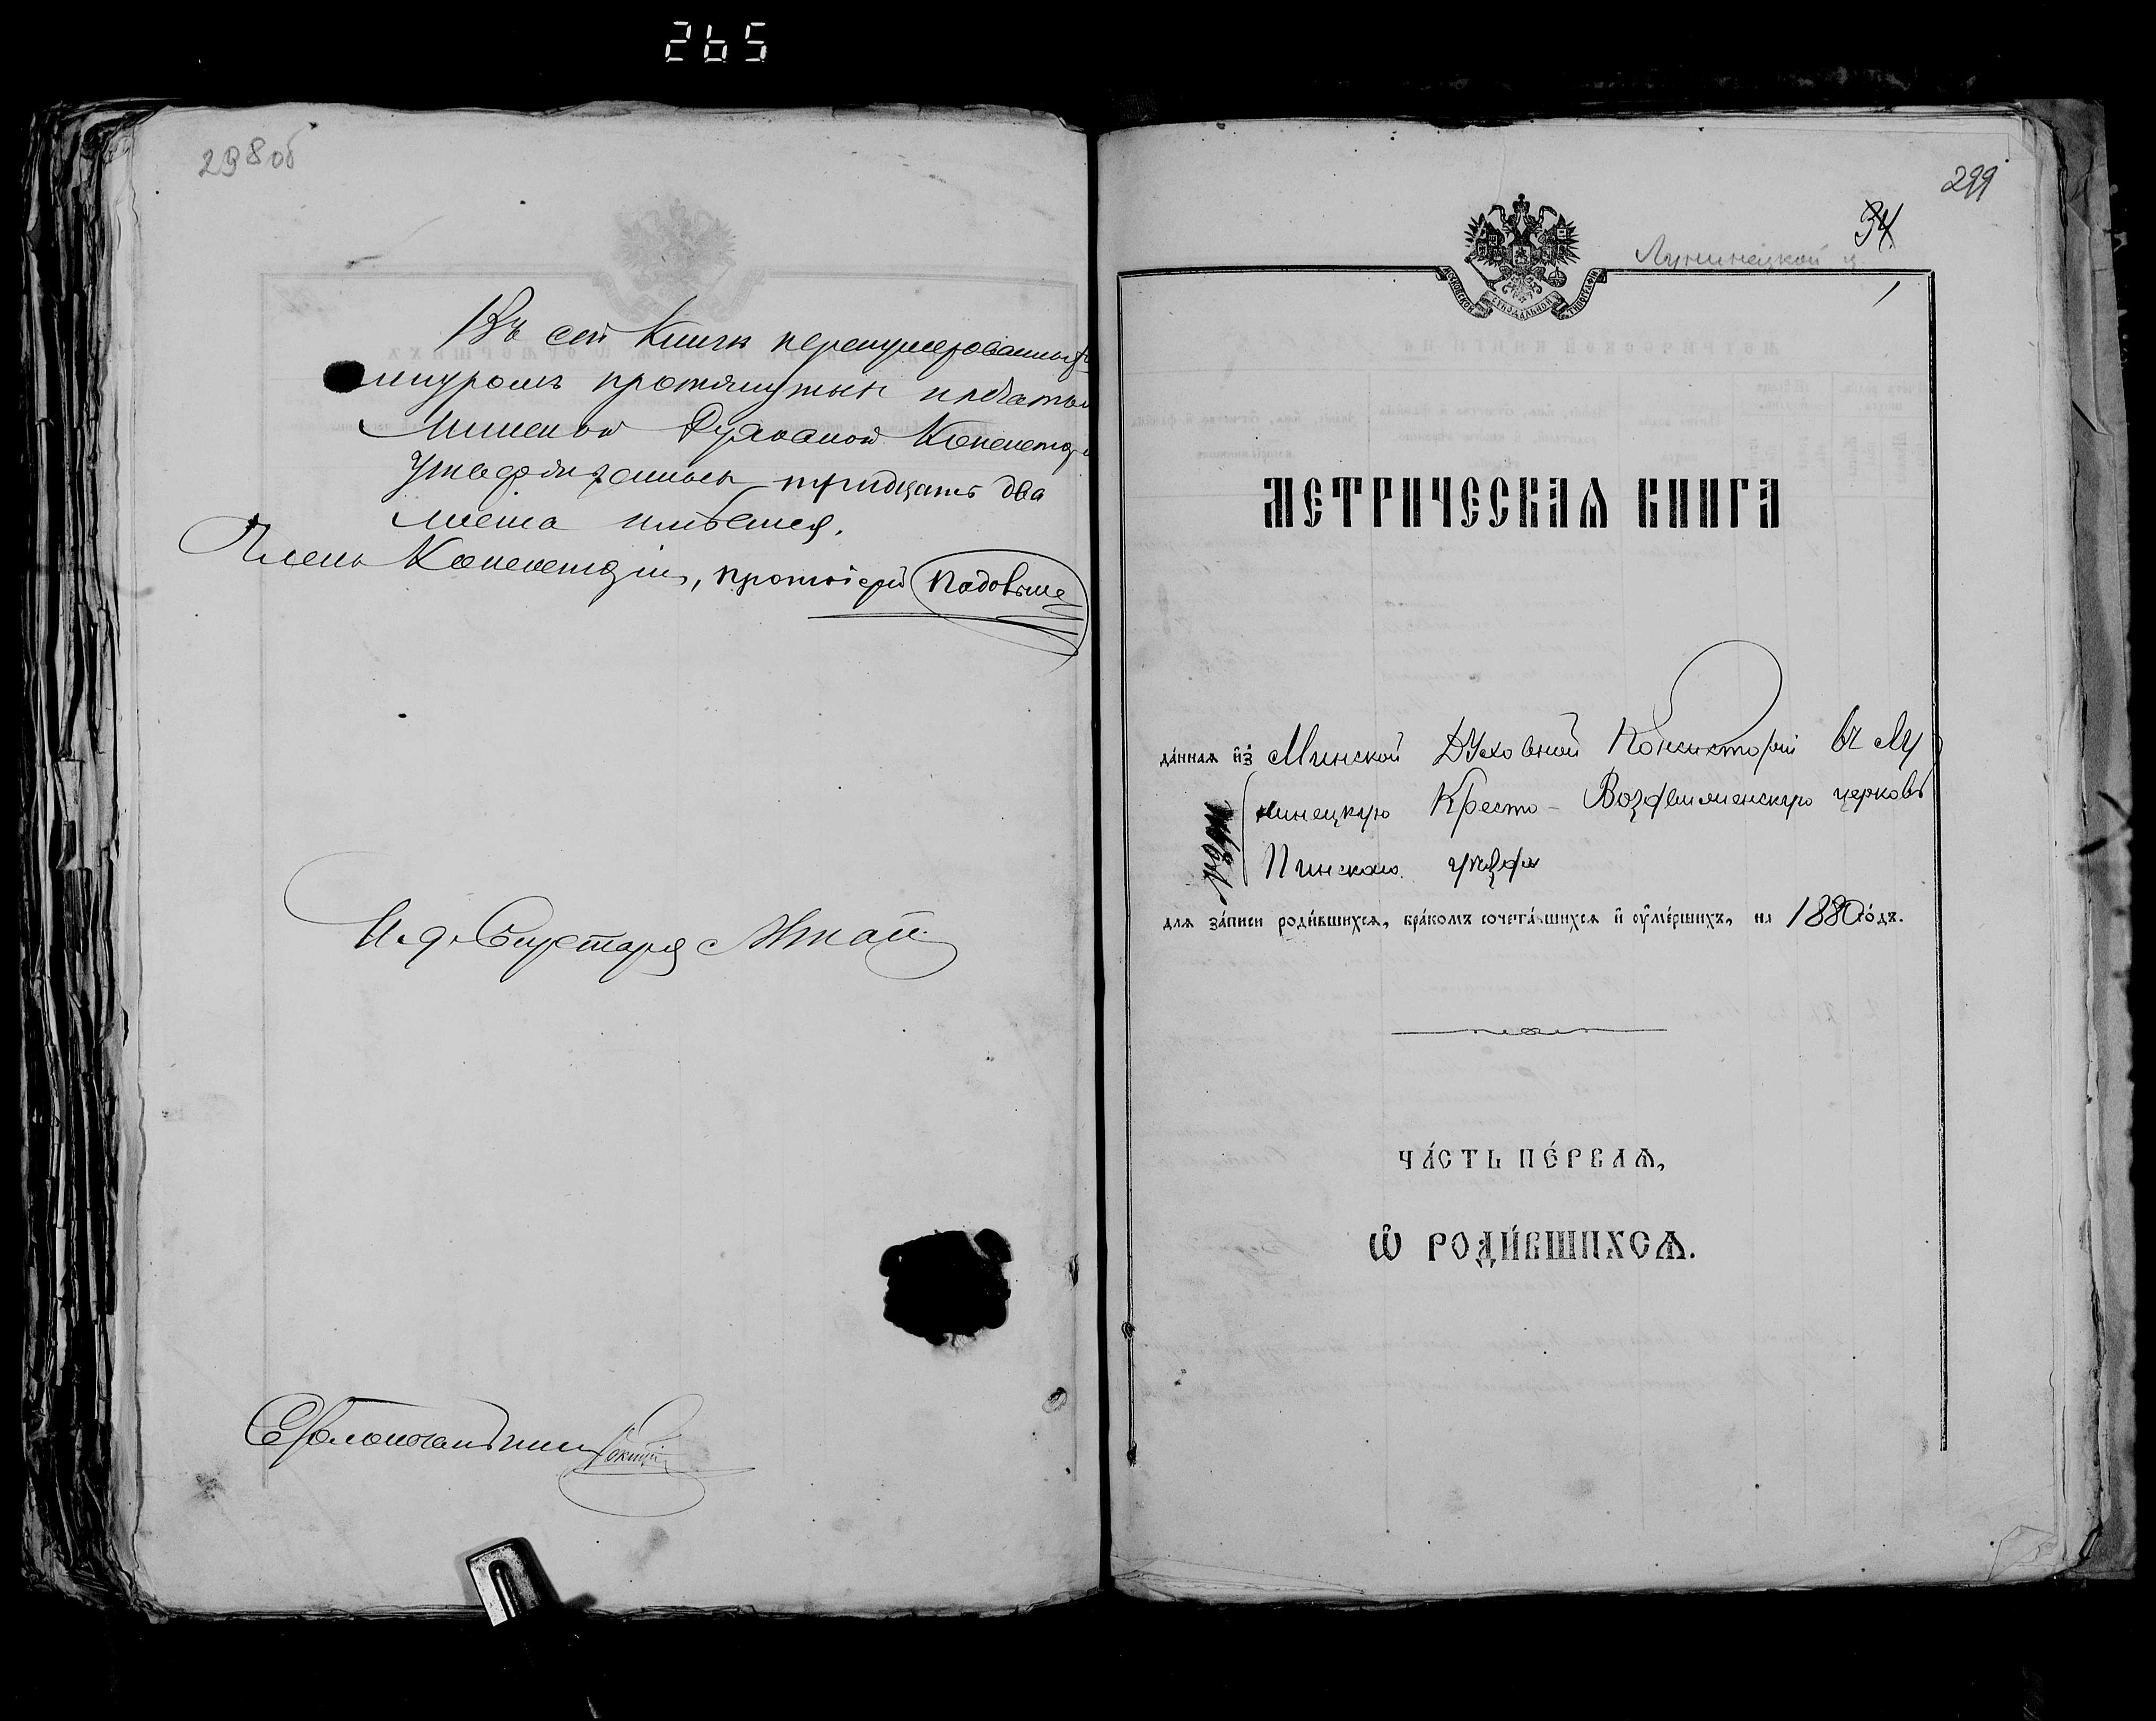 265
298 об
Въ сей Книгѣ перенумерованныхъ
шнуромъ протянутыхъ печатью
Минской Духовной Консисторіи
утвержденныхъ тридцать два
листа имѣется.
Членъ Консисторіи, протоіерей
И. д. Секретаря
Столоначальникъ
299
34
Лунинецкой ц.
1
МОСКОВСКОЙ СѴНОДАЛЬНОЙ ТИПОГРАФІИ
МЕТРИЧЕСКАѦ КНИГА
да́ннаѧ и҆з̾ Минской Духовной Консисторіи въ Лу
нинецкую Кресто-Воздвиженскую церковь
Пинскаго уѣзда
для за́писи роди́вшихсѧ, бра́комъ сочета́вшихсѧ и҆ ᲂу҆ме́ршихъ, на 1880 го́дъ.
ЧА́СТЬ ПЕ́РВАѦ,
Ѽ РОДИ́ВШИХСѦ.